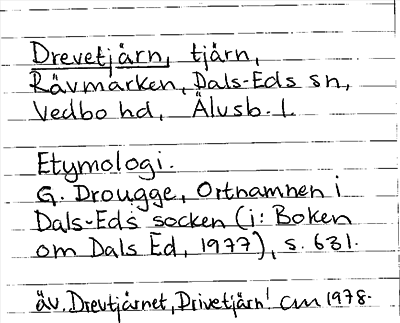 Drevetjårn, tjärn,
Rävmarken, Dals-Eds sn,
Vedbo hd, Älvsb. l.
Etymologi.
G. Drougge, Ortnamnen i
Dals-Eds socken (i: Boken
om Dals Ed, 1977), s. 631.
äv. Drevtjärnet, Drivetjärn! 1978.